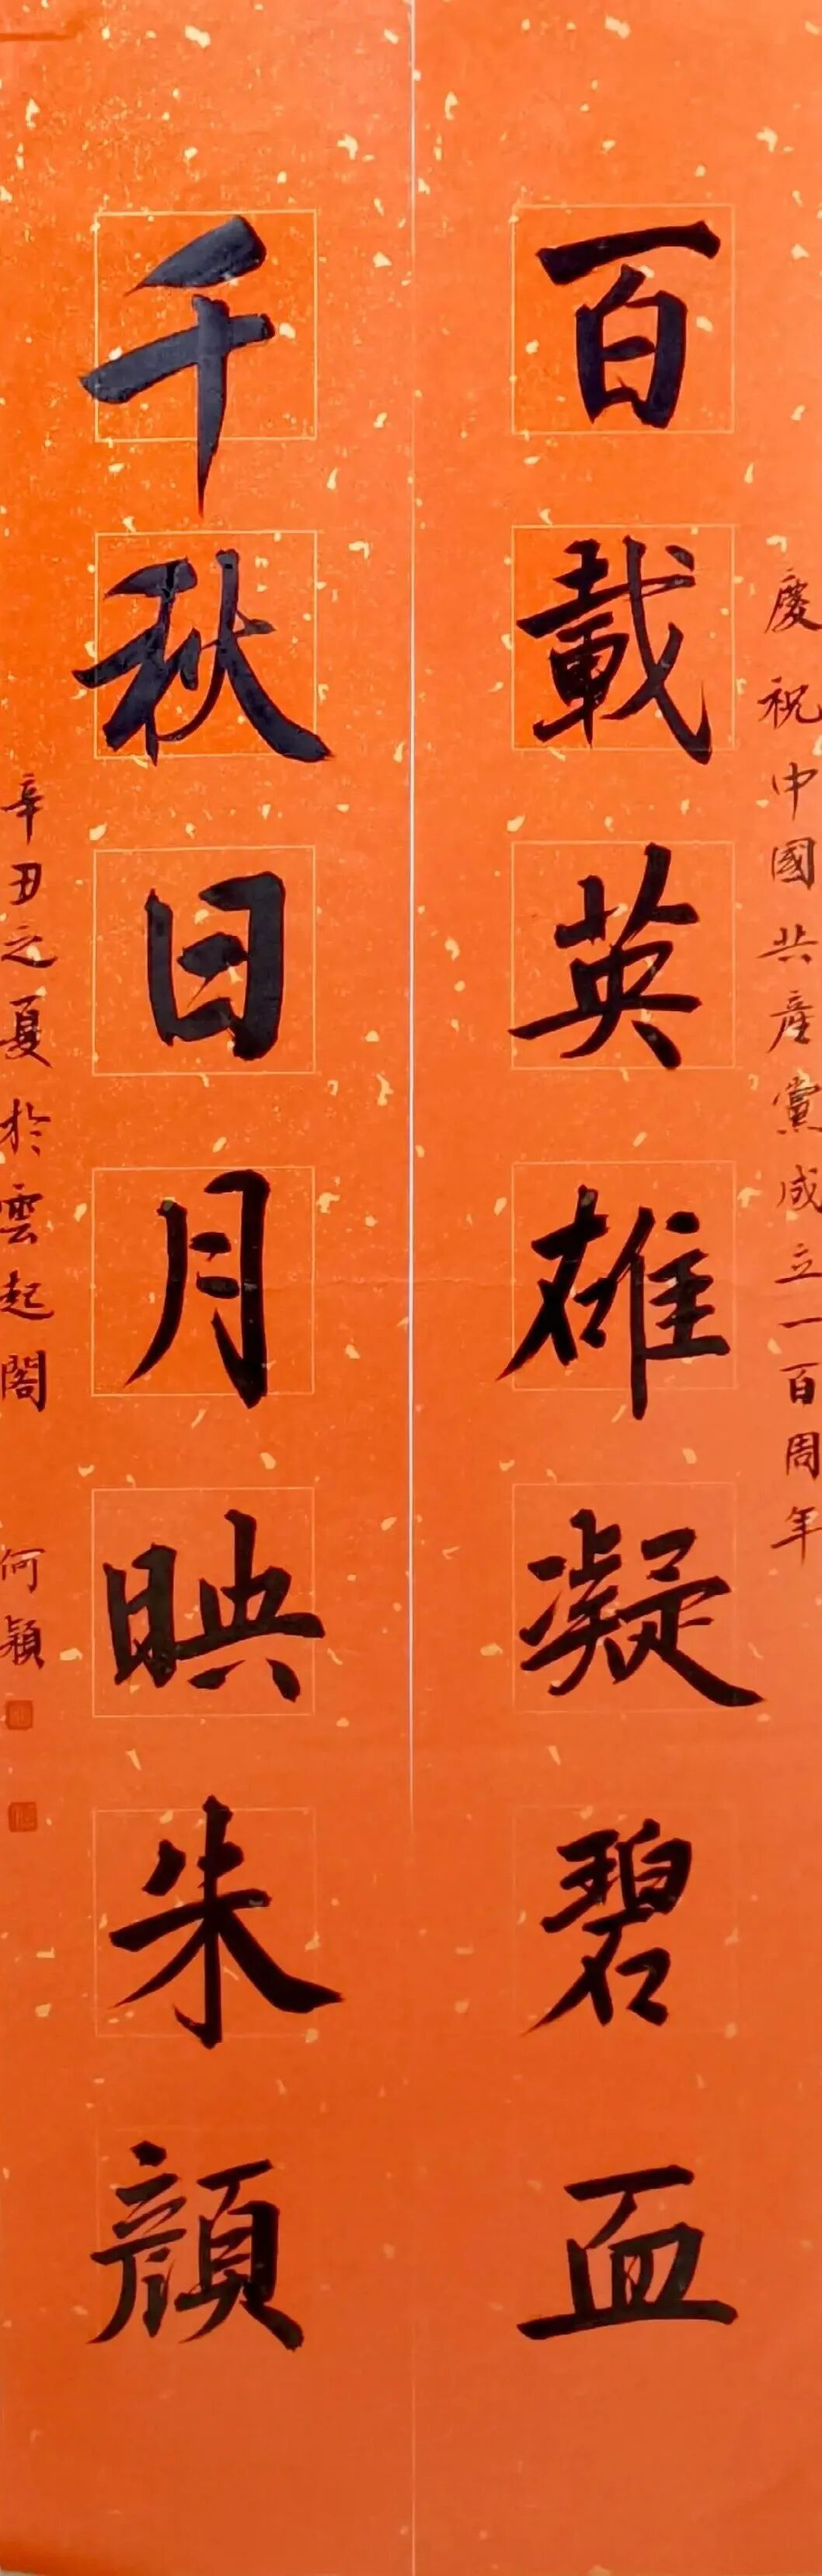 慶祝中國共產黨成立一百周年
百載英雄凝碧血
千秋日月映朱顏
辛丑之夏於雲起閣 何穎